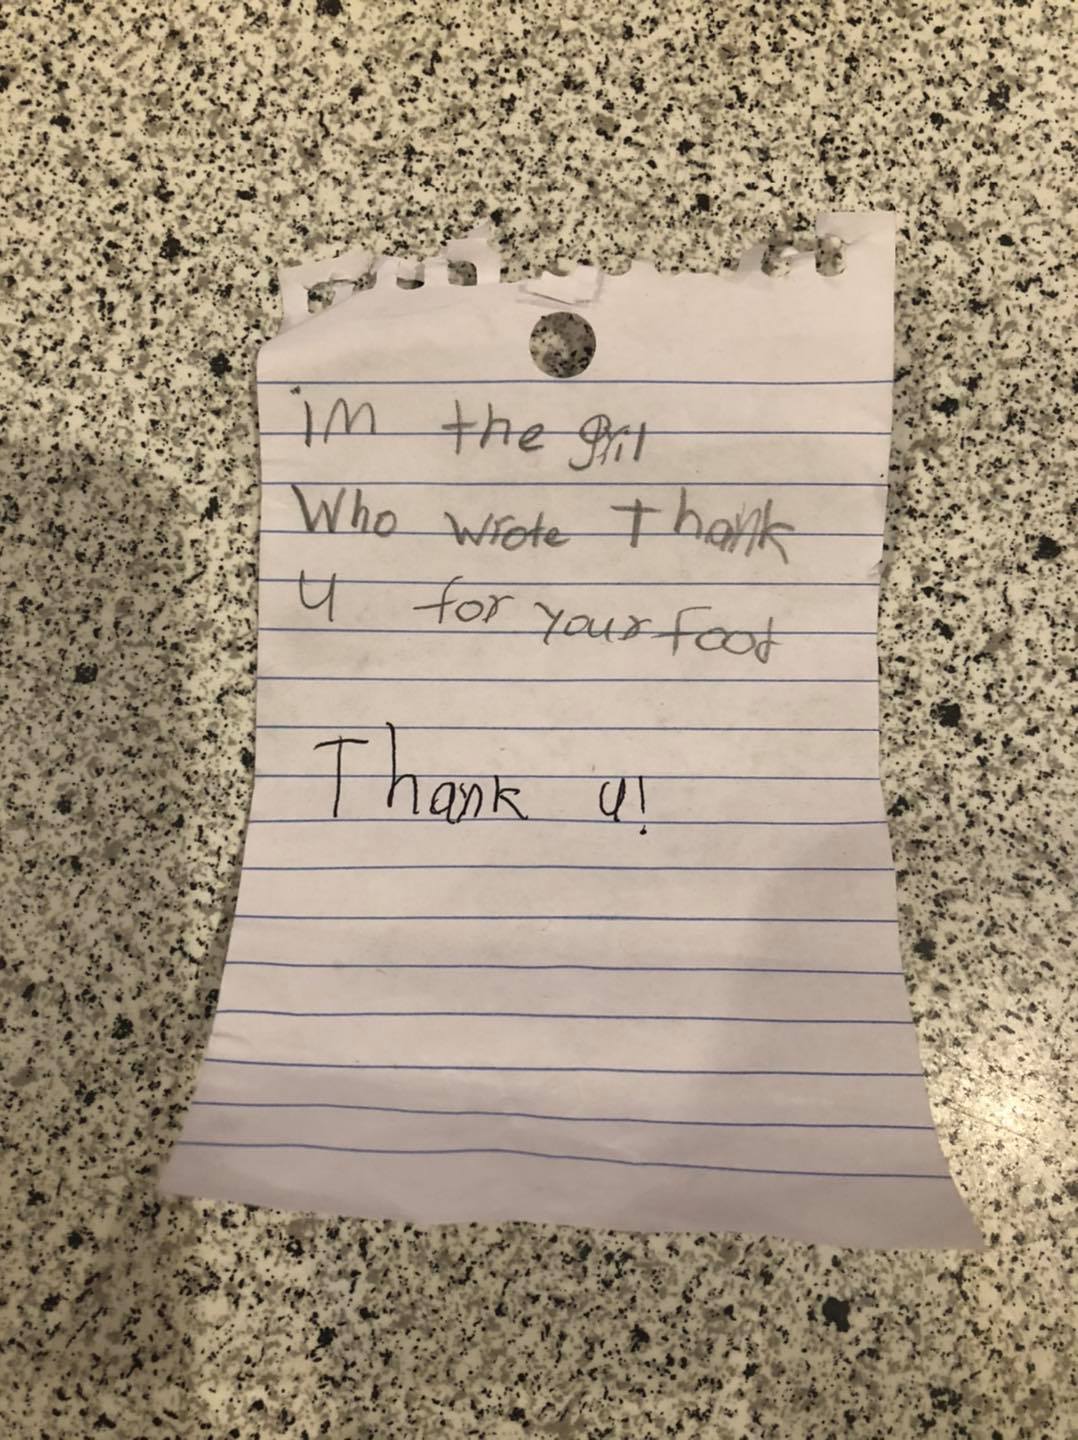 iM the gril
Who wrote Thank
U for your food
Thank u!